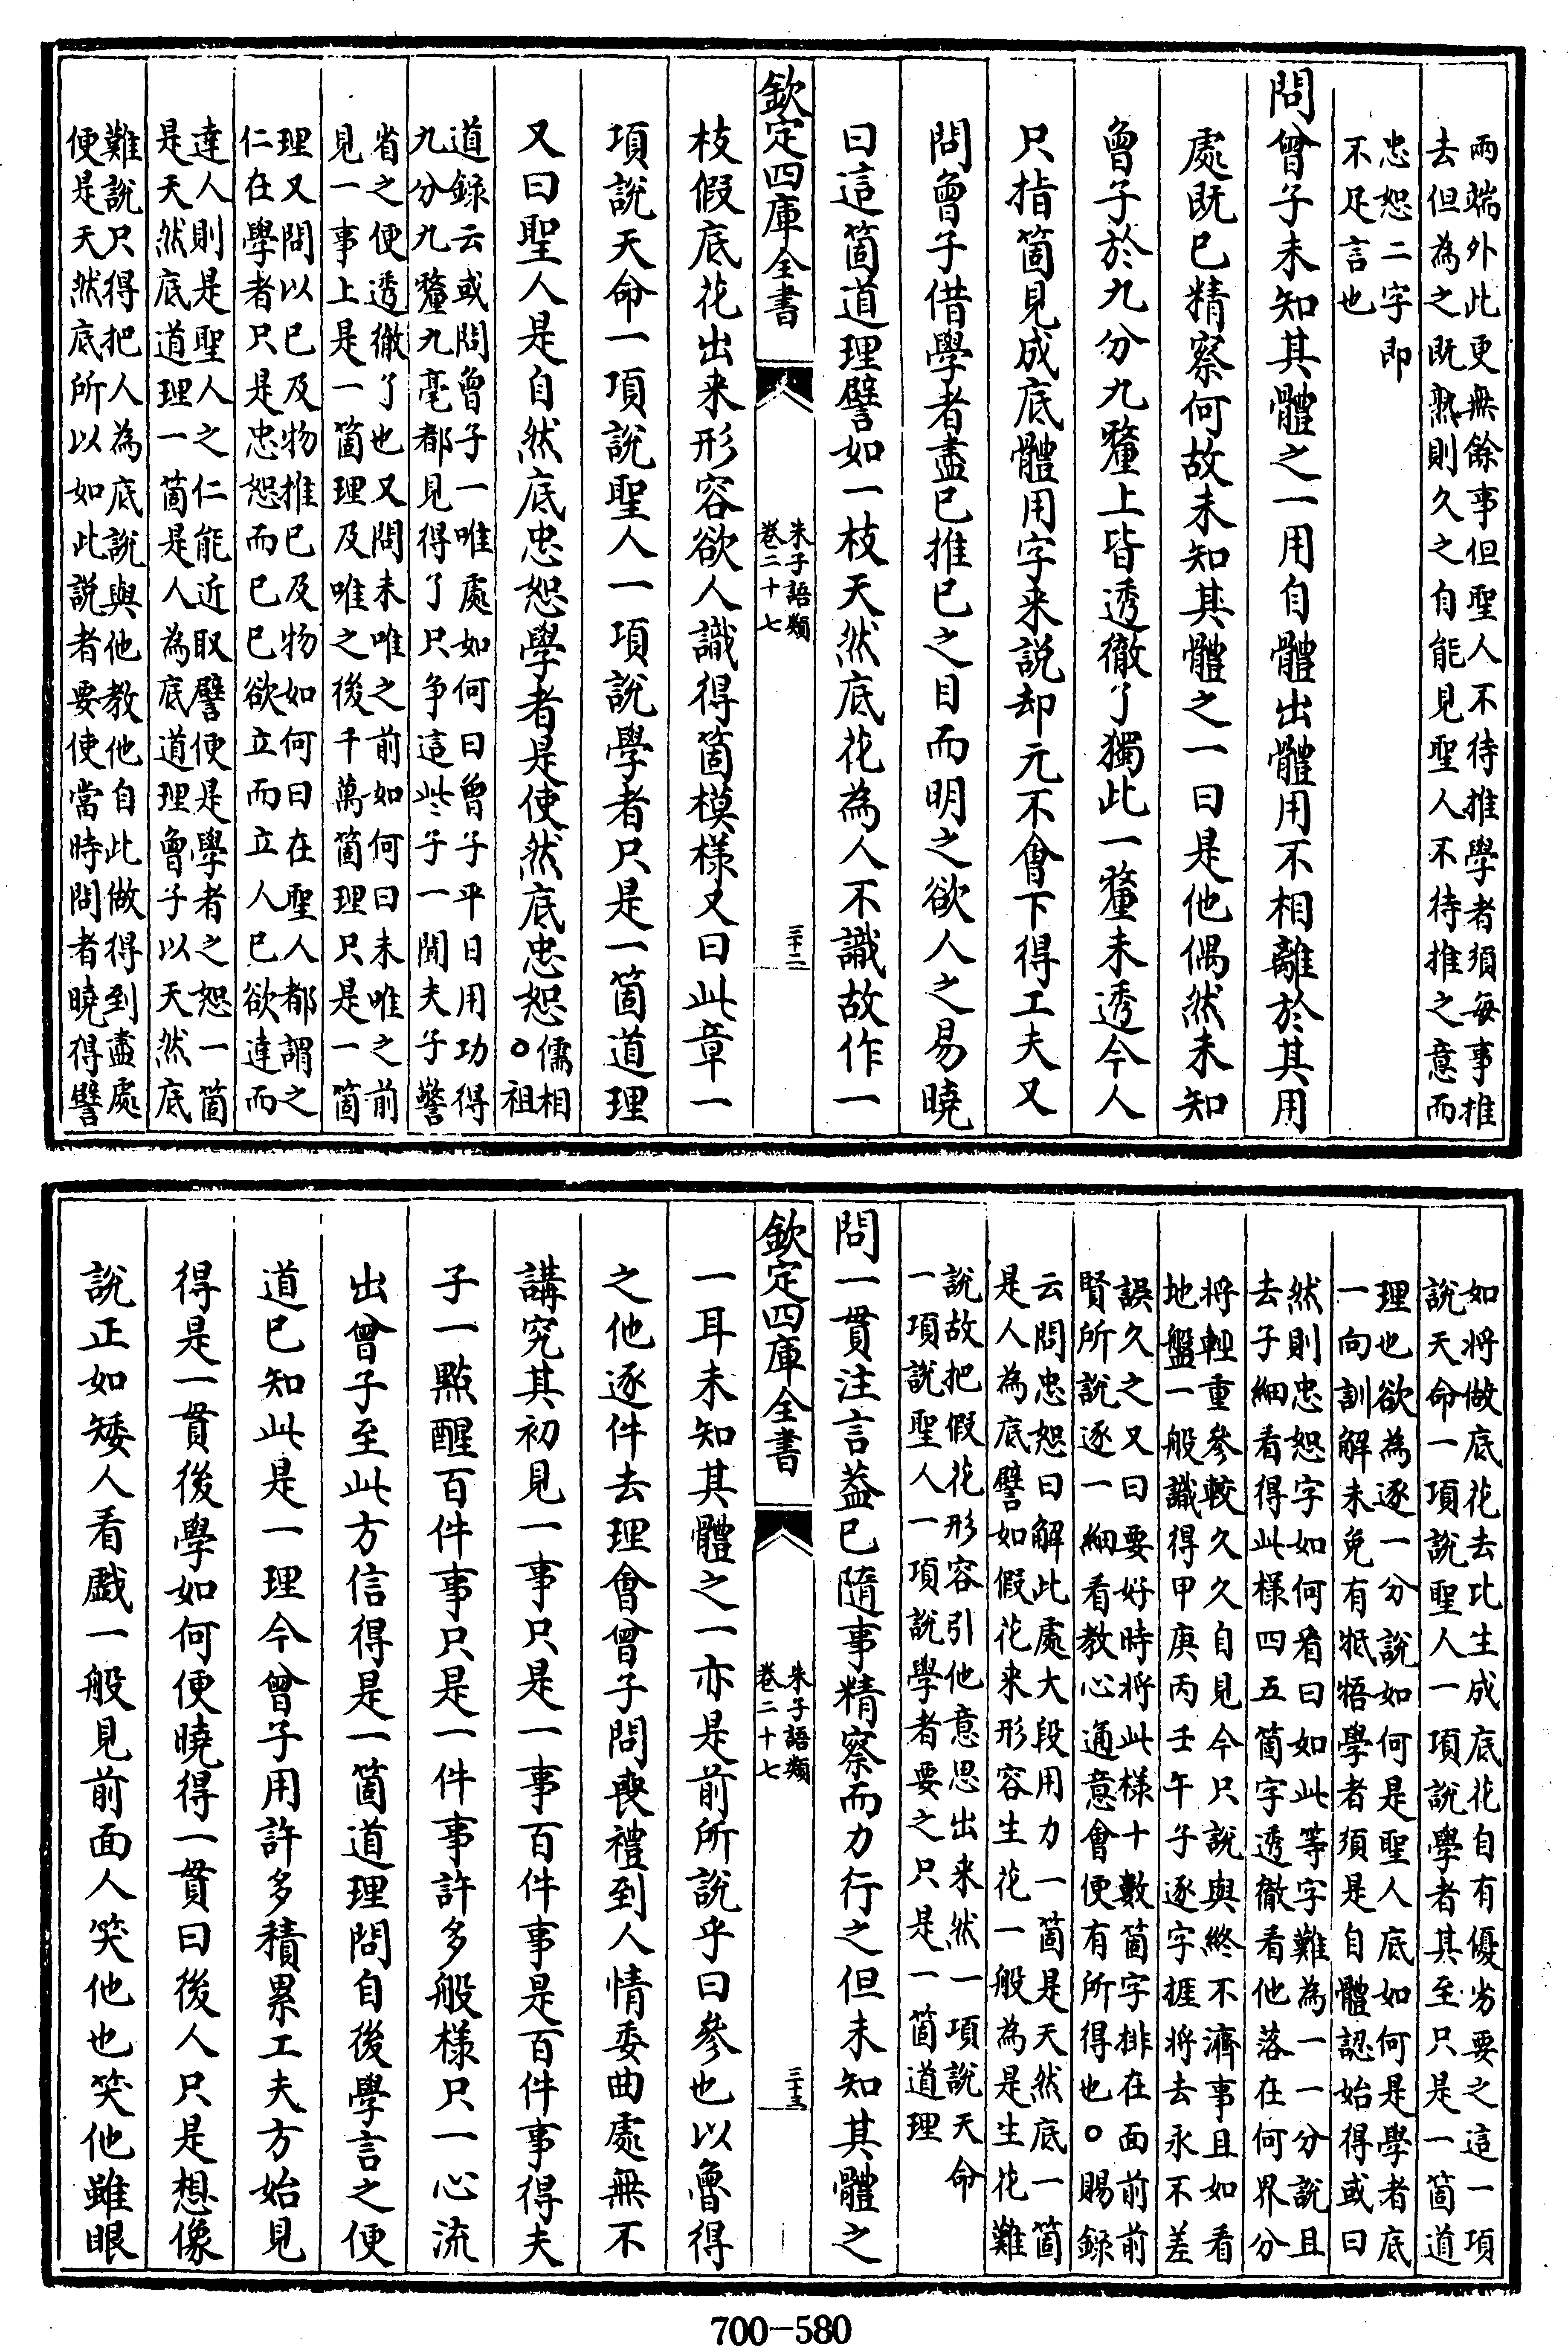 兩端外此更無餘事但聖人不待推學者須每事推
去但為之既熟則久之自能見聖人不待推之意而
忠恕二字即
不足言也
問曾子未知其體之一用自體出體用不相離於其用
處既已精察何故未知其體之一曰是他偶然未知
曾子於九分九釐上皆透徹了獨此一釐未透今人
只指箇見成底體用字来説却元不會下得工夫又
問曾子借學者盡已推已之目而明之欲人之易曉
曰這箇道理譬如一枝天然底花為人不識故作一
欽定四庫全書
朱子語類
卷二十七
三十二
枝假底花出来形容欲人識得箇模様又曰此章一
項說天命一項說聖人一項說學者只是一箇道理
又曰聖人是自然底忠恕學者是使然底忠恕儒相
○祖
道錄云或問曾子一唯處如何曰曾子平日用功得
九分九釐九毫都見得了只争這些子一聞夫子警
省之便透徹了也又問未唯之前如何曰未唯之前
見一事上是一箇理及唯之後千萬箇理只是一箇
理又問以已及物推已及物如何曰在聖人都謂之
仁在學者只是忠恕而已已欲立而立人已欲達而
達人則是聖人之仁能近取譬便是學者之恕一箇
是天然底道理一箇是人為底道理曾子以天然底
難說只得把人為底說與他教他自此做得到盡處
便是天然底所以如此説者要使當時問者曉得譬
如將做底花去比生成底花自有優劣要之這一項
説天命一項説聖人一項説學者其至只是一箇道
理也欲為逐一分說如何是聖人底如何是學者底
一向訓解未免有牴牾學者須是自體認始得或曰
然則忠恕字如何看曰如此等字難為一一分說且
去子細看得此樣四五箇字透徹看他落在何界分
將輕重參較久久自見今只說與終不濟事且如看
地盤一般識得甲庚丙壬午子逐字捱將去永不差
誤久之又曰要好時將此樣十數箇字排在面前前
賢所說逐一細看教心通意會便有所得也○賜錄
云問忠恕曰解此處大段用力一箇是天然底一箇
是人為底譬如假花来形容生花一般為是生花難
說故把假花形容引他意思出来然一項說天命
一項說聖人一項說學者要之只是一箇道理
問一貫注言葢已隨事精察而力行之但未知其體之
欽定四庫全書
朱子語類
卷二十七
三十三
一耳未知其體之一亦是前所說乎曰參也以魯得
之他逐件去理會曾子問喪禮到人情委曲處無不
講究其初見一事只是一事百件事是百件事得夫
子一點醒百件事只是一件事許多般様只一心流
出曾子至此方信得是一箇道理問自後學言之便
道已知此是一理今曾子用許多積累工夫方始見
得是一貫後學如何便曉得一貫曰後人只是想像
説正如矮人看戲一般見前面人笑他也笑他雖眼
700—580